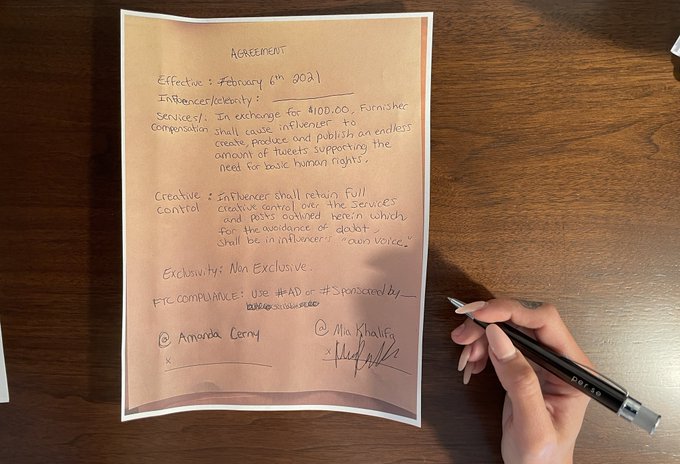 AGREEMENT
Effective : February 6th 2021
Influencer/celebrity : ____________
Services/: In exchange for $100.00, Furnisher
compensation shall cause influencer to
create, produce and publish an endless
amount of tweets supporting the
need for basic human rights.
Creative : Influencer shall retain full
control creative control over the services
and posts outlined herein which
for the avoidance of doubt,
shall be in influencer's "own voice."
Exclusivity: Non Exclusive.
FTC COMPLIANCE: Use #AD or #Sponsored by __
@ Amanda Cerny
@ Mia Khalifa
x
x
per se